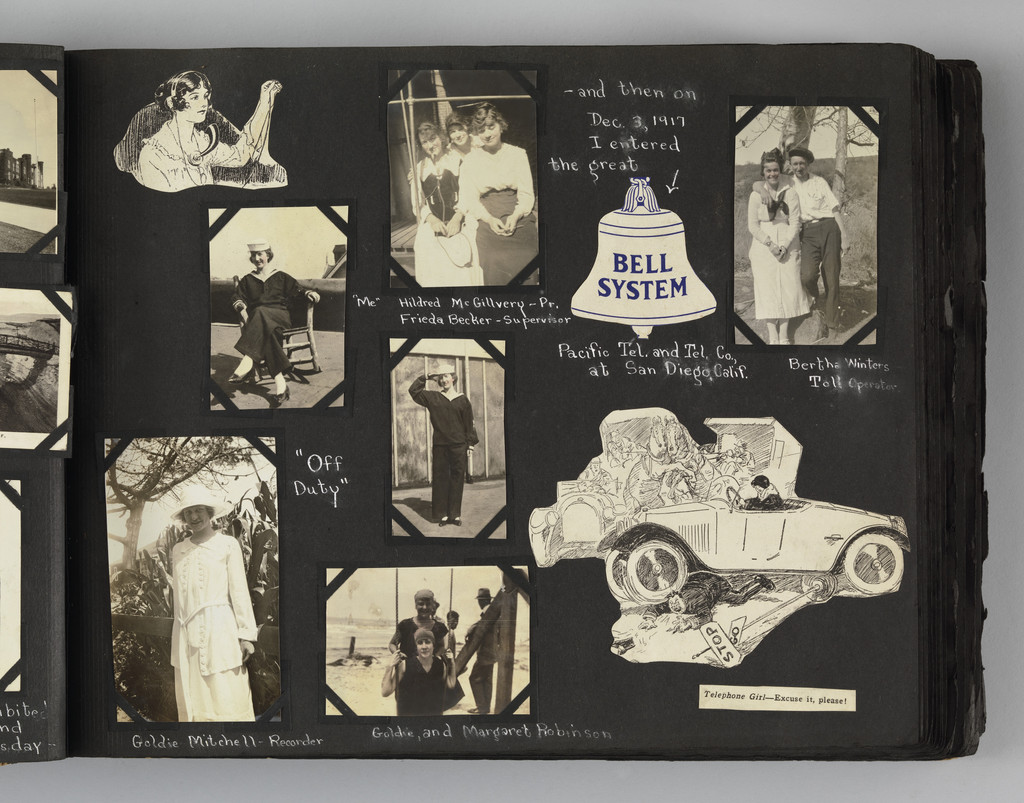 - and then on
Dec. 3, 1917
I entered
the great
BELL
SYSTEM
"Me"
Hildred McGillvery - Pr.
Frieda Becker - Supervisor
Pacific Tel. and Tel. Co.,
at San Diego, Calif.
Bertha Winters
Toll Operator
"Off
Duty"
STOP
GO
Telephone Girl—Excuse it, please!
Goldie Mitchell - Recorder
Goldie, and Margaret Robinson